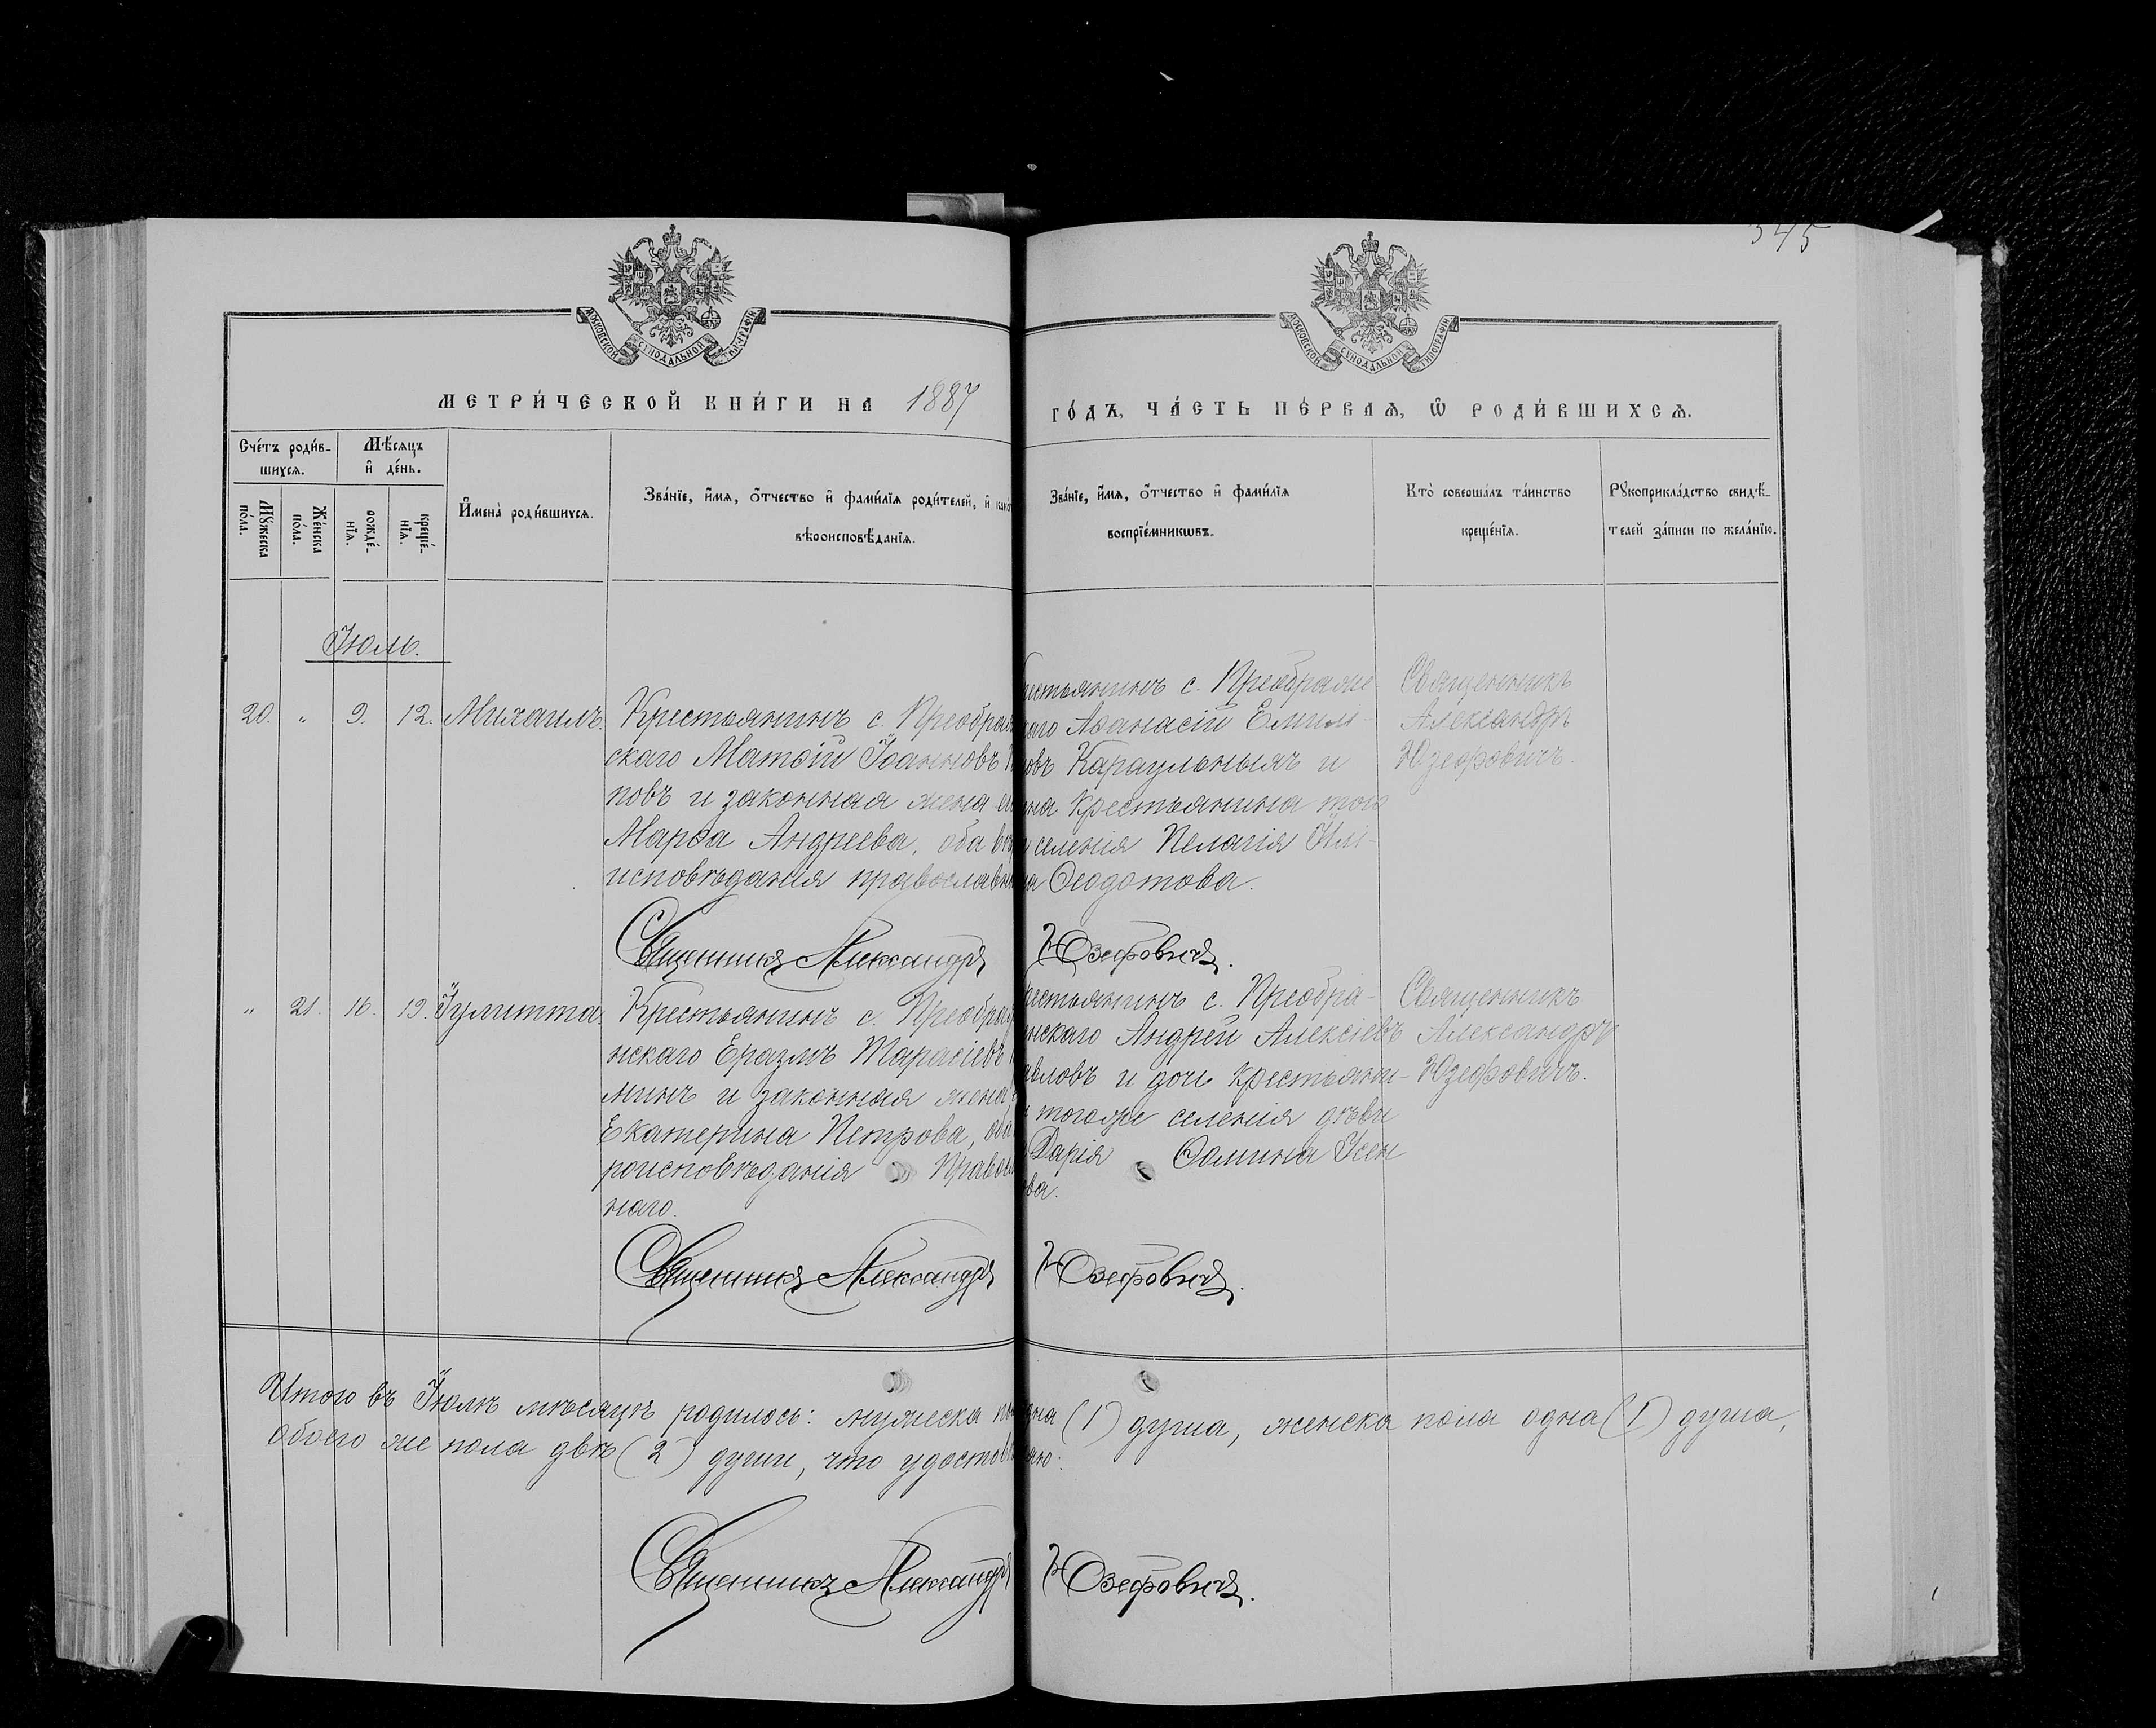 345
МОСКОВСКОЙ СѴНОДАЛЬНОЙ ТИПОГРАФІИ
МОСКОВСКОЙ СѴНОДАЛЬНОЙ ТИПОГРАФІИ
МЕТРИ́ЧЕСКОЙ КНИ́ГИ НА 1887
ГО́ДЪ, ЧА́СТЬ ПЕ́РВАѦ, Ѿ РОДИ́ВШИХСѦ.
Сче́тъ роди́в-
шихсѧ.
Мѣ́сяцъ
и҆ де́нь.
Мꙋ́жеска
по́ла.
Же́нска
по́ла.
рожде́-
нїѧ.
креще́-
нїѧ.
И҆мена̀ роди́вшихсѧ.
Зва́нїе, и҆́мѧ, ѻ҆́тчество и҆ фами́лїѧ роди́телей, и҆ како
вѣроисповѣ́данїѧ.
Зва́нїе, и҆́мѧ, ѻ҆́тчество и҆ фами́лїѧ
воспрїе́мникѡвъ.
Кто̀ соверша́лъ та́инство
креще́нїѧ.
Рꙋкоприкла́дство свидѣ́-
телей за́писи по жела́нїю.
Іюль.
20. " 9. 12. Михаилъ.
Крестьянинъ с. Преображ
скаго Матѳій Іоанновъ
повъ и законная жена е
Марѳа Андреева, оба вѣ
исповѣданія православн
рестьянинъ с. Преображе-
каго Аѳанасій Емилі-
овъ Караульныхъ и
на крестьянина того
селенія Пелагія Илі-
а Ѳеодотова.
Священникъ
Александръ
Юзефовичъ.
Священникъ Александръ Юзефовичъ.
" 21. 16. 19. Іулитта.
Крестьянинъ с. Преобра
нскаго Еразмъ Тарасіевъ
минъ и законная жена
Екатерина Петрова, оба
роисповѣданія Правосл
наго.
рестьянинъ с. Преобра-
нскаго Андрей Алексіевъ
авловъ и дочь крестьяни-
тогоже селенія дѣви
Дарія Ѳомина Усен
ва.
Священникъ
Александръ
Юзефовичъ.
Священникъ Александръ Юзефовичъ.
Итого въ Іюлѣ мѣсяцѣ родилось: мужеска по дна (1) душа, женска пола одна (1) душа,
обоего же пола двѣ (2) души, что удостовѣ яю.
Священникъ Александръ Юзефовичъ.